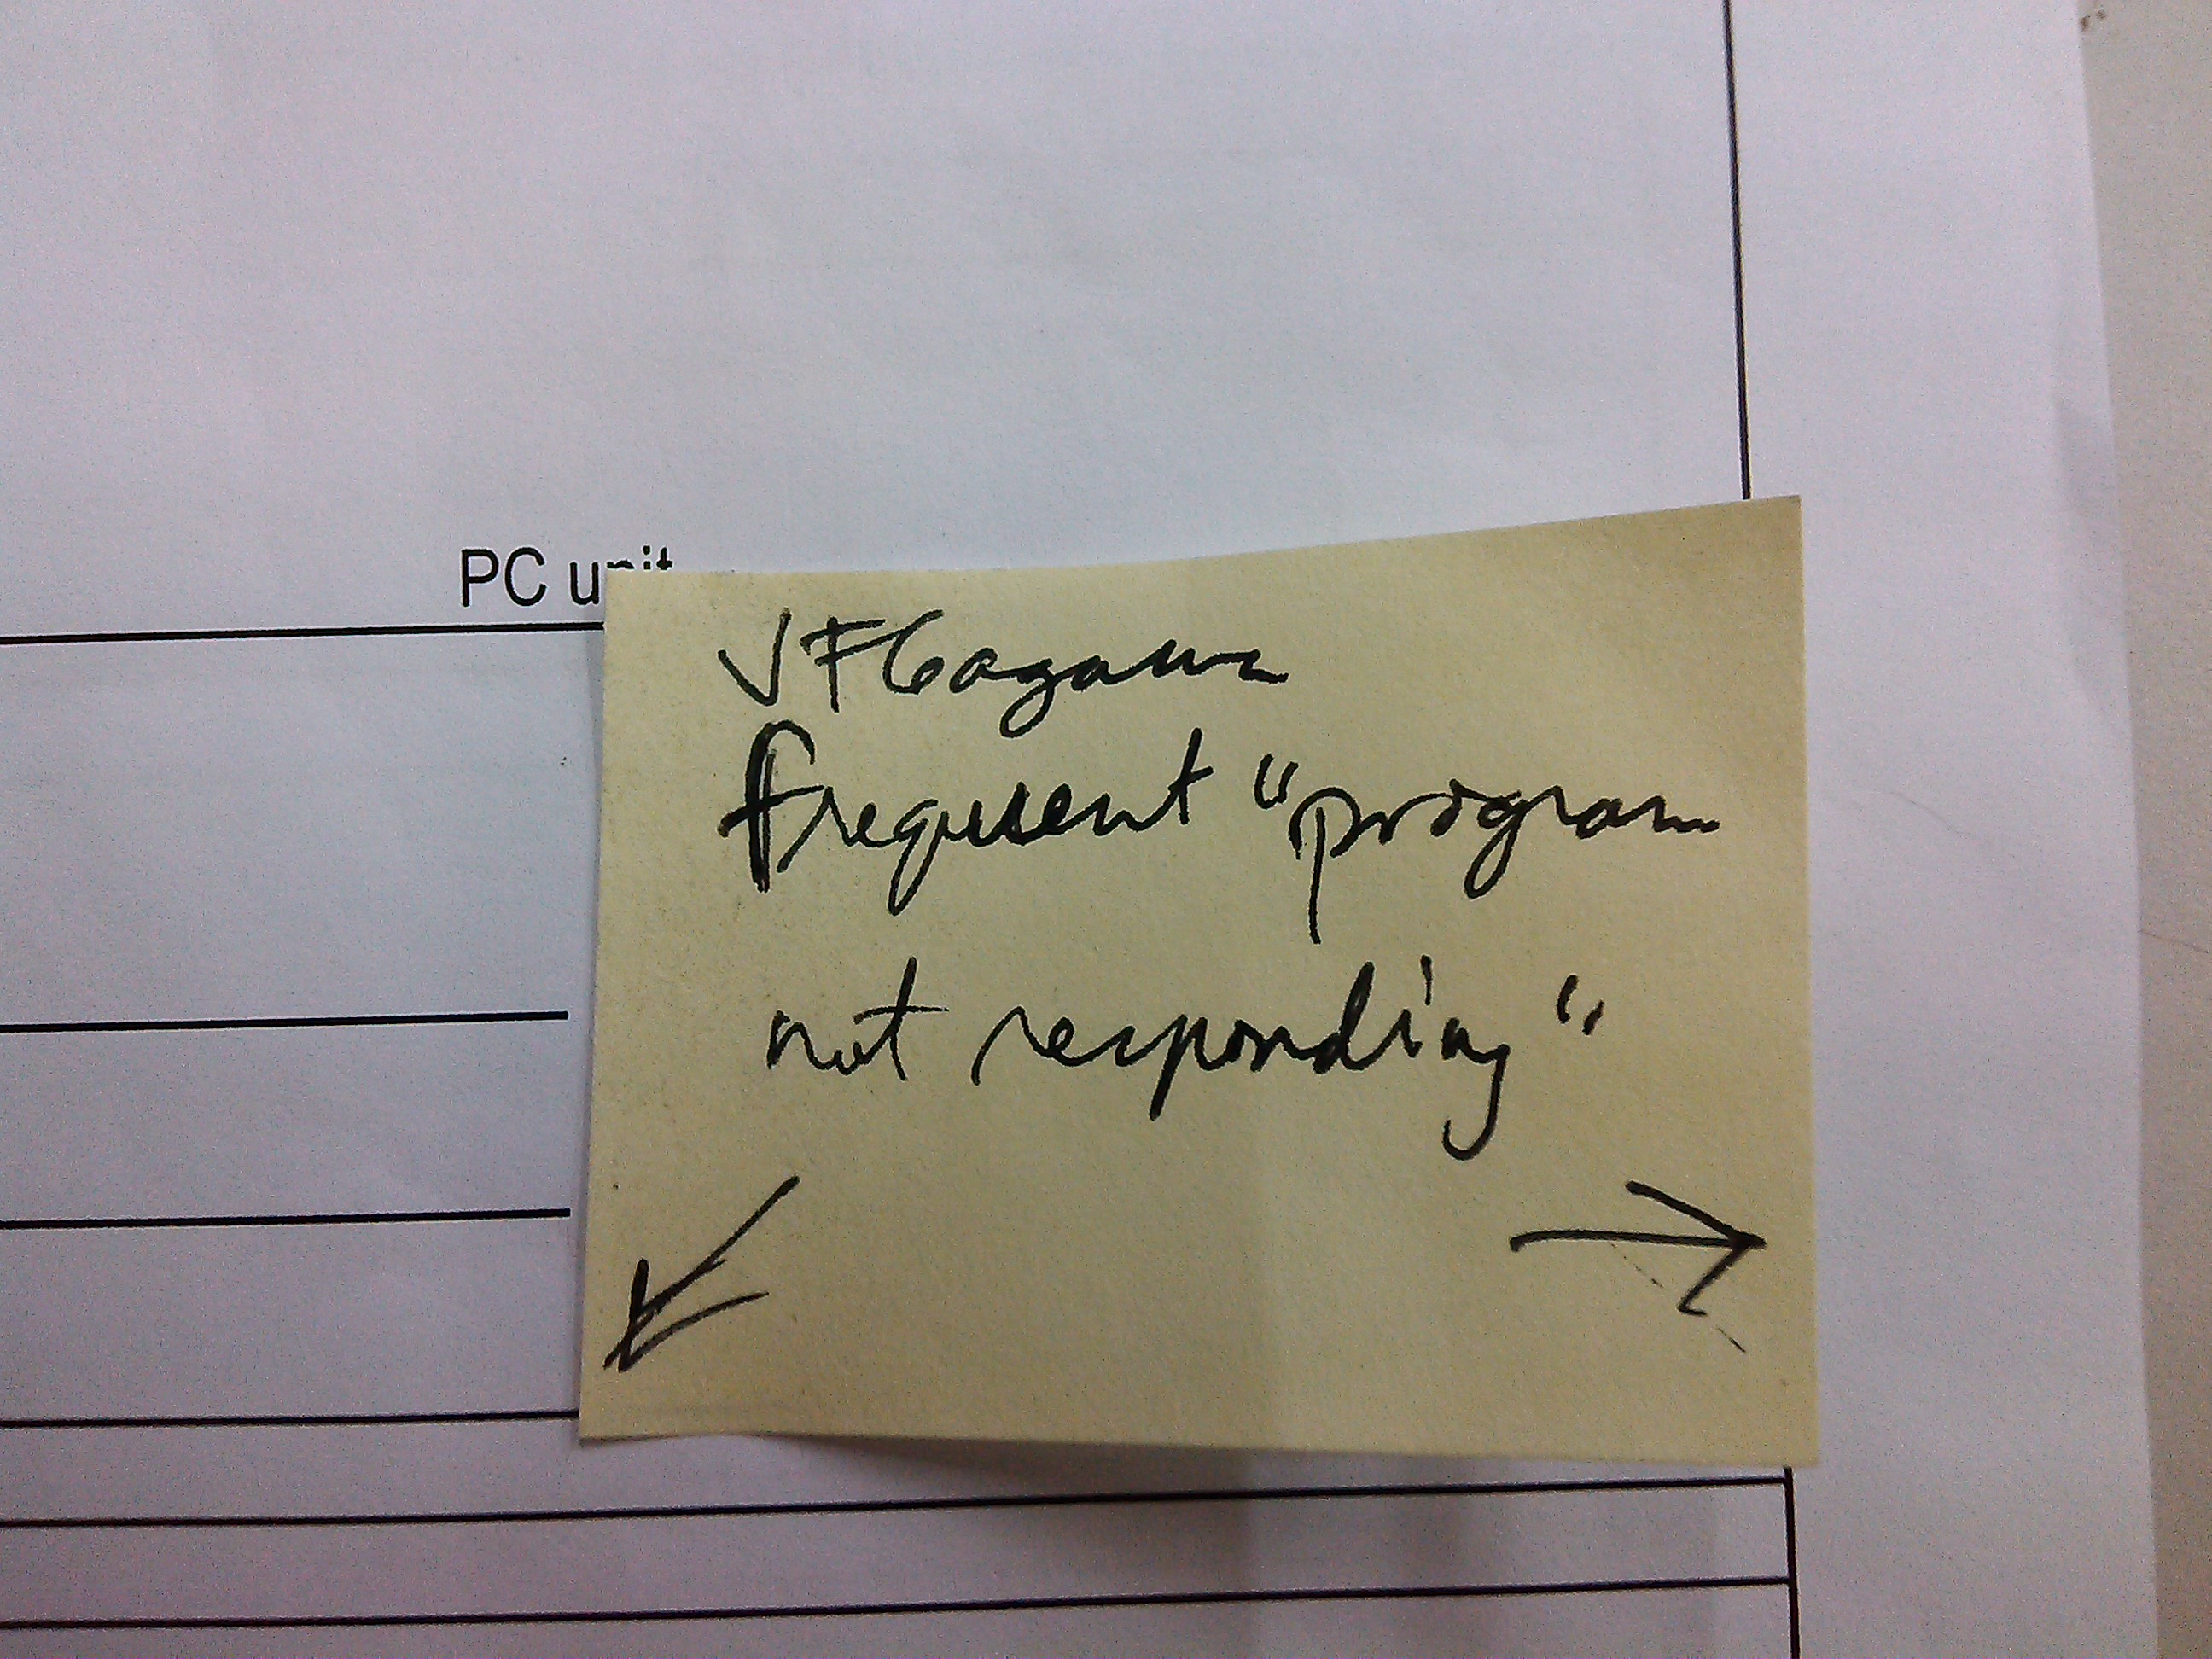 PC unit
VFGagawa
frequent "program
not responding"